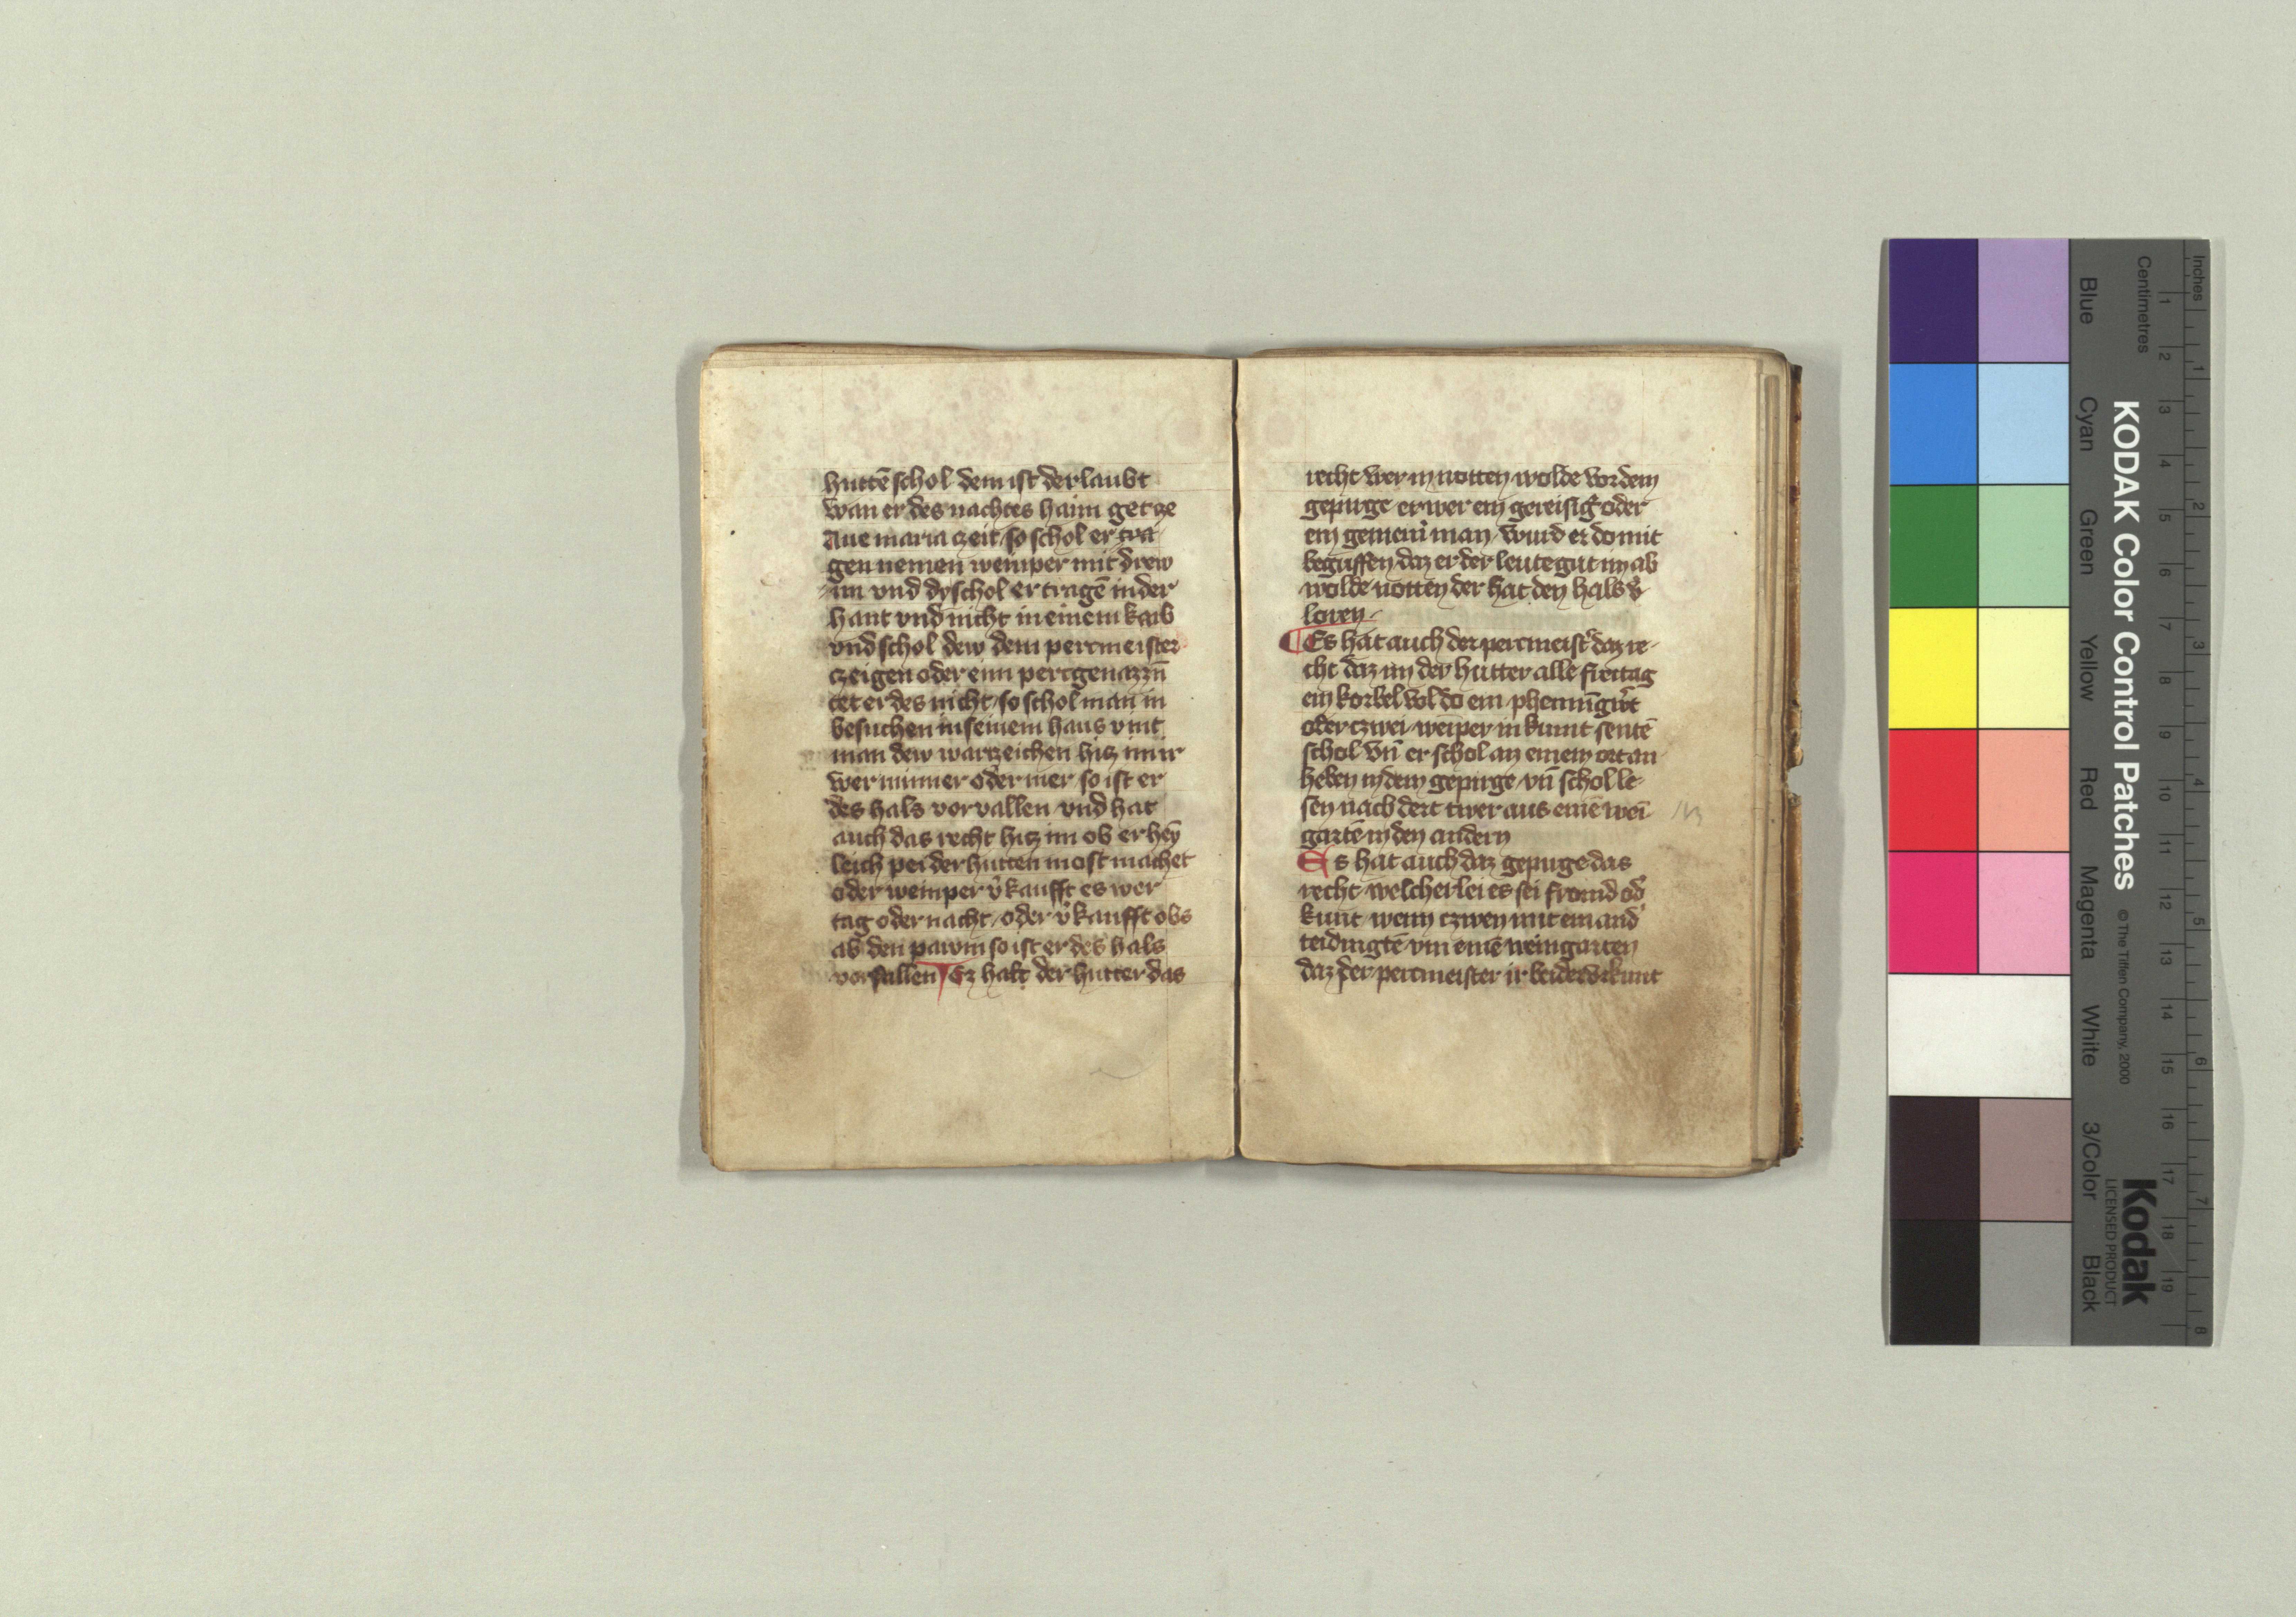 huttē schol dem ist derlaubt
wan er des nachtes haim get ze
Aue maria czeit so schol er tra
gen nemen weinper mit drew
an vnd dy schol er tragē in der
hant vnd nicht in einem korb
vnd schol dew dem percmeister
czeigen oder eim percgenazzn̄
tet er des nicht / so schol man in
besuchen in seinem haus vint
man dew warzeichen hitz inn ir
wer minner oder mer so ist er
des hals vorvallen vnd hat
auch das recht hitz im ob er hey̅
leich pei der hutten most machet
oder weinper v̾kaufft es wer
tag oder nacht / oder v̾kaufft obs
ab den pawm so ist er des hals
vorfallen Ez habt der hutter das
recht wer in notten wolde vor dem
gepirge er wer ein gereisig̾ oder
ein gemein̾ man / wurd er do mit
begriffen daz er der leute gut im ab
wolde notten der hat den hals v̾
loren
Es hat auch der percmeist̾ daz re-
cht daz im der hutter alle freitag
ein korbel vol do ein phennīgw̾t
oder czwei weīper in kumt sentē
schol vn̄ er schol an einem ort an
heben in dem gepirge vn̄ schol le-
sen nach dert twer aus einē wei-
gartē in den andern
Es hat auch daz gepirge das
recht welcherlei es sei fromd od̾
kunt wenn czwen mit einand̾
teidingtē vm einē weingarten
daz der percmeister ir beider
KODAK Color Control Patches
© The Tiffen Company, 2000
Kodak
LICENSED PRODUCT
Inches
Centimetres
1 2 3 4 5 6 7 8
1 2 3 4 5 6 7 8 9 10 11 12 13 14 15 16 17 18 19
Blue
Cyan
Green
Yellow
Red
Magenta
White
3/Color
Black